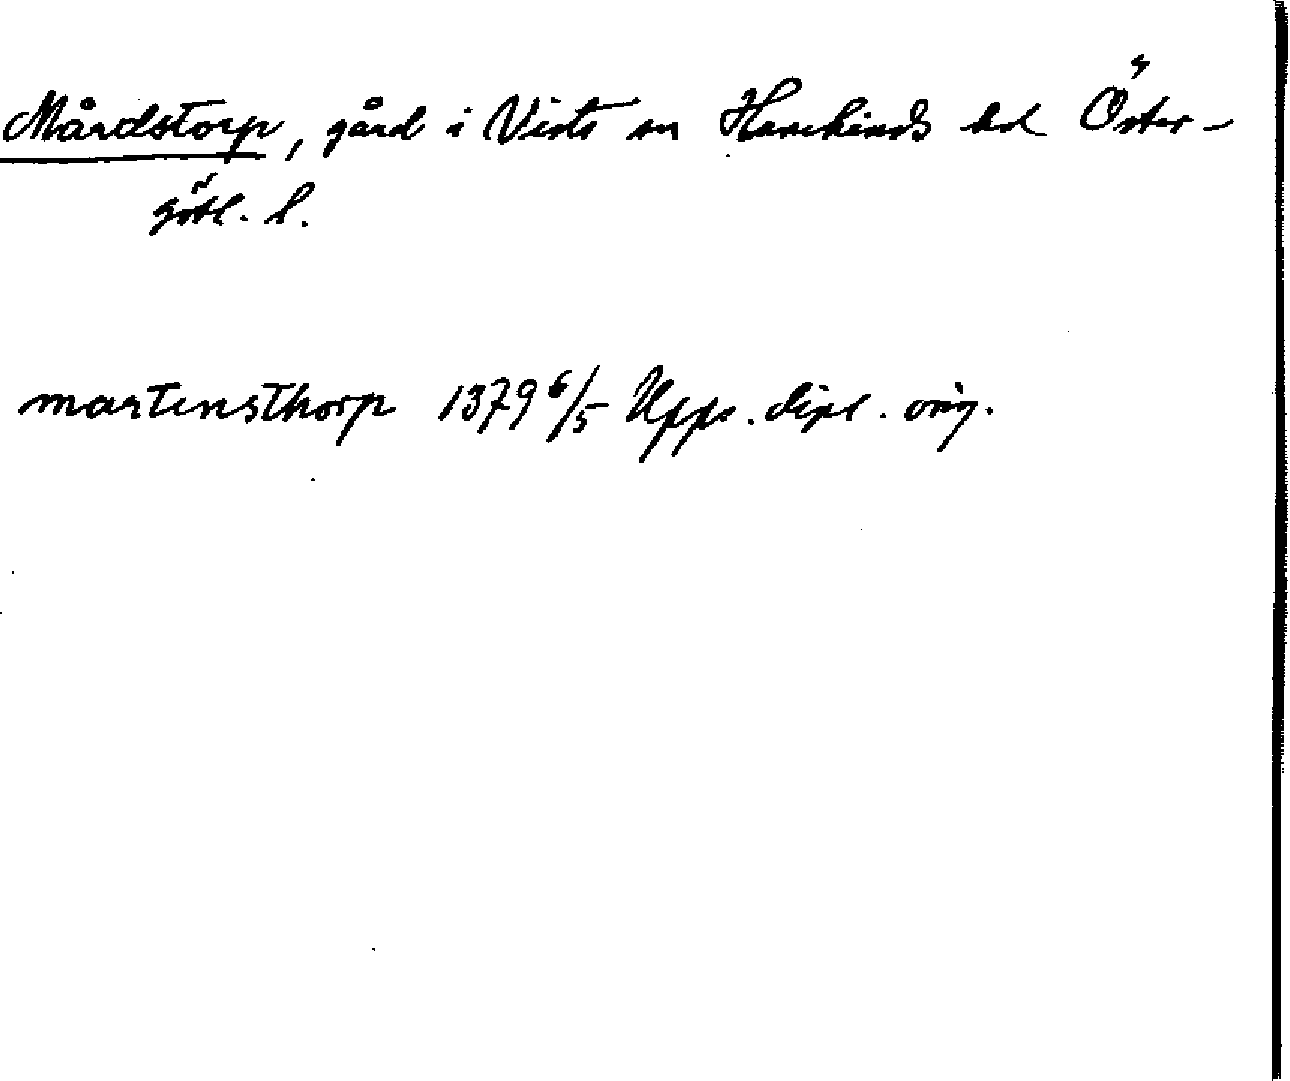 Mårdstorp, gård i Vists sn Hanekinds hd Öster-
götl. l.
martensthorp 1379 6/5 Upps. dipl. orig.